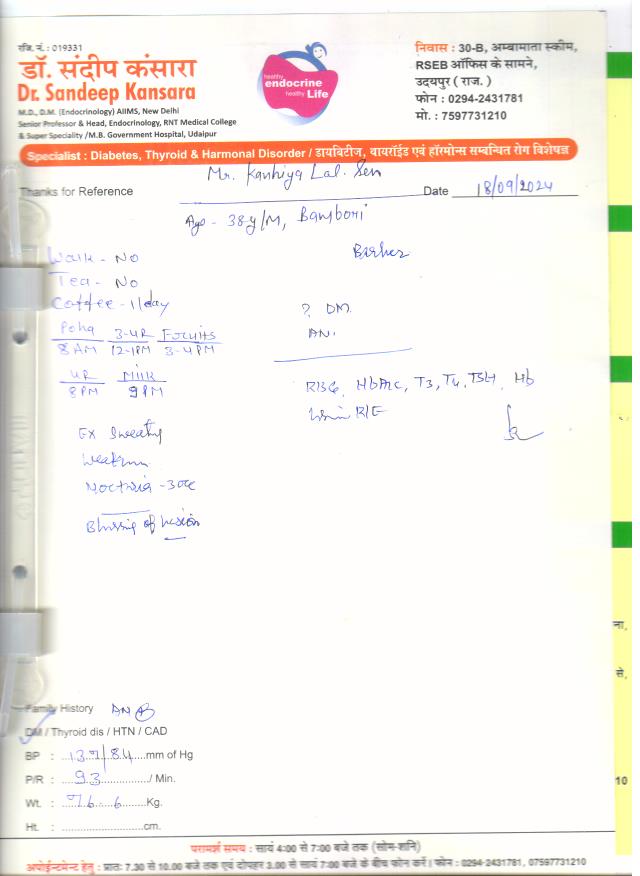 रजि. नं. : 019331
डॉ. संदीप कंसारा
Dr. Sandeep Kansara
M.D., D.M. (Endocrinology) AIIMS, New Delhi
Senior Professor & Head, Endocrinology, RNT Medical College
& Super Speciality /M.B. Government Hospital, Udaipur
healthy
endocrine
healthy Life
निवास : 30-B, अम्बामाता स्कीम,
RSEB ऑफिस के सामने,
उदयपुर ( राज. )
फोन : 0294-2431781
मो. : 7597731210
Specialist : Diabetes, Thyroid & Harmonal Disorder / डायबिटीज, थायरॉईड एवं हॉरमोन्स सम्बन्धित रोग विशेषज्ञ
Thanks for Reference Mr. Kanhiya Lal Sen Date 18/09/2024
Age - 38y/M, Bambori
Barber
Walk - NO
Tea - NO
Coffee - 1/day
Poha 3-UR Fruits
8AM 12-1PM 3-4PM
UR Milk
8PM 9PM
? DM.
AN.
RBG, HbA1c, T3, T4, TSH, Hb
Urine R/E
EX Sweating
Weakness
Nocturia
Blurring of vision
Family History
DM / Thyroid dis / HTN / CAD
BP : 137/84 mm of Hg
P/R : 93 / Min.
Wt. : 76.6 Kg.
Ht. : cm.
परामर्श समय : सायं 4:00 से 7:00 बजे तक (सोम-शनि)
अपोईन्टमेन्ट हेतु : प्रातः 7.30 से 10.00 बजे तक एवं दोपहर 3.00 से सायं 7:00 बजे के बीच फोन करें। फोन : 0294-2431781, 07597731210
ना,
से,
10